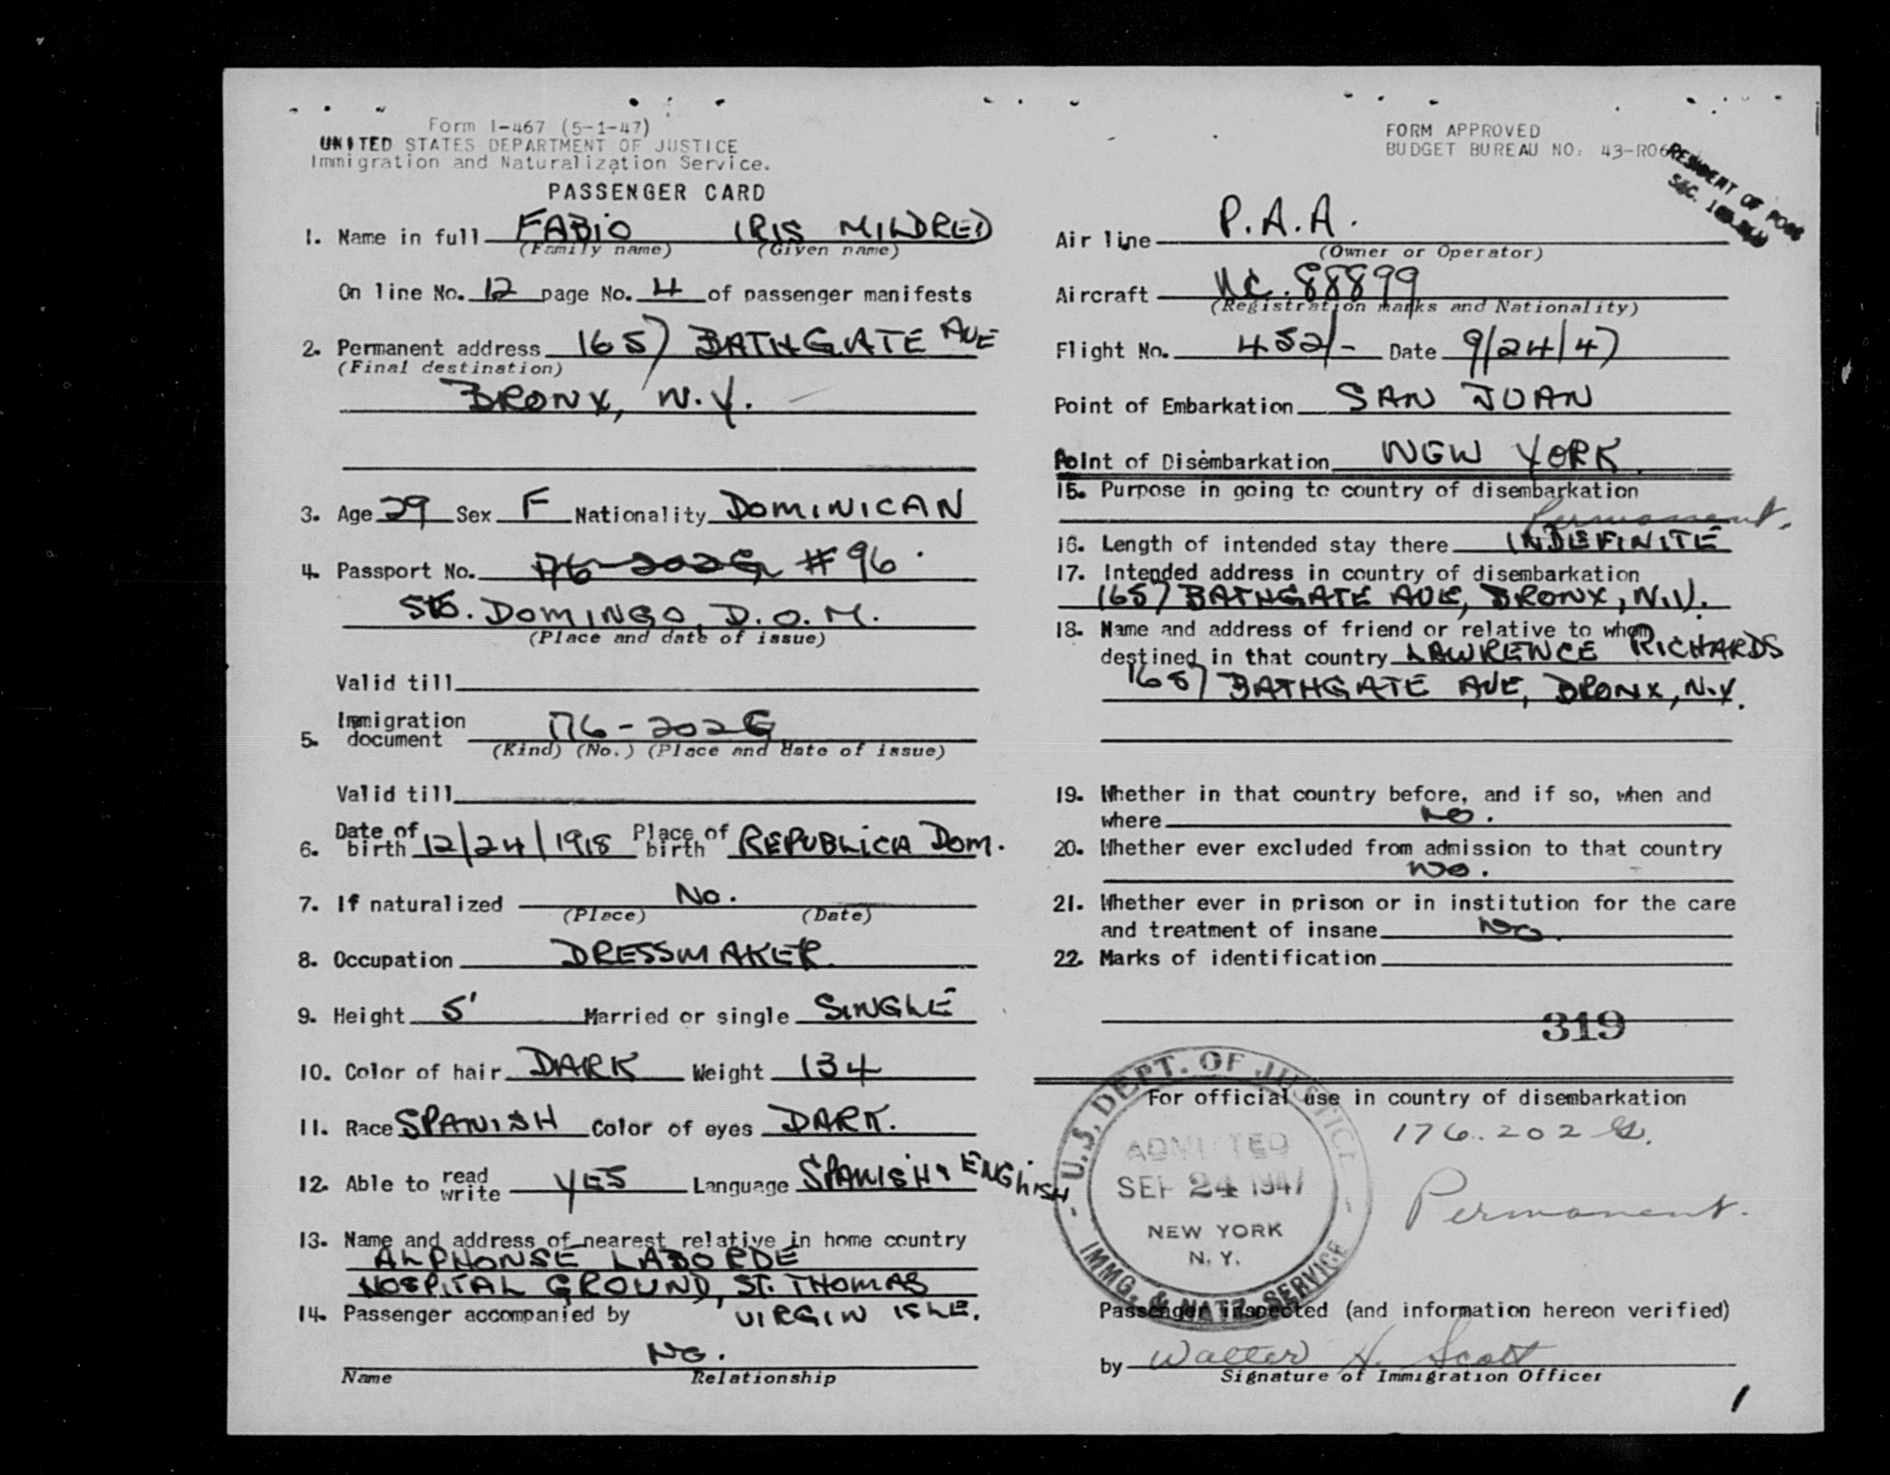 Form I-467 (5-1-47)
UNITED STATES DEPARTMENT OF JUSTICE
Immigration and Naturalization Service.
PASSENGER CARD
1. Name in full FABIO IRIS MILDRED
(Family name) (Given name)
On line No. 12 page No. 4 of passenger manifests
2. Permanent address 1657 BATHGATE AVE
(Final destination)
BRONX, N.Y.
3. Age 29 Sex F Nationality DOMINICAN
4. Passport No. #96
STO. DOMINGO, D.O.M.
(Place and date of issue)
Valid till
5. Immigration document 176-202G
(Kind) (No.) (Place and date of issue)
Valid till
6. Date of birth 12/24/1918 Place of birth REPUBLICA DOM.
7. If naturalized No.
(Place) (Date)
8. Occupation DRESSMAKER
9. Height 5' Married or single SINGLE
10. Color of hair DARK Weight 134
11. Race SPANISH Color of eyes DARK.
12. Able to read write YES Language SPANISH & ENGLISH
13. Name and address of nearest relative in home country
ALPHONSE LABORDE
HOSPITAL GROUND, ST. THOMAS
14. Passenger accompanied by VIRGIN ISLE.
NO.
Name Relationship
FORM APPROVED
BUDGET BUREAU NO. 43-R06
RESIDENT OF
SEC.
Air line P.A.A.
(Owner or Operator)
Aircraft NC. 88899
(Registration marks and Nationality)
Flight No. 452/- Date 9/24/47
Point of Embarkation SAN JUAN
Point of Disembarkation NEW YORK
15. Purpose in going to country of disembarkation
Permanent.
16. Length of intended stay there INDEFINITE
17. Intended address in country of disembarkation
1657 BATHGATE AVE, BRONX, N.Y.
18. Name and address of friend or relative to whom
destined in that country LAWRENCE RICHARDS
1657 BATHGATE AVE, BRONX, N.Y.
19. Whether in that country before, and if so, when and
where NO.
20. Whether ever excluded from admission to that country
NO.
21. Whether ever in prison or in institution for the care
and treatment of insane NO.
22. Marks of identification
319
For official use in country of disembarkation
176.202 G.
Permanent.
U.S. DEPT. OF JUSTICE
ADMITTED
SEP 24 1947
NEW YORK
N. Y.
IMMG. & NATZ. SERVICE
Passenger inspected (and information hereon verified)
by Walter H. Scott
Signature of Immigration Officer
1